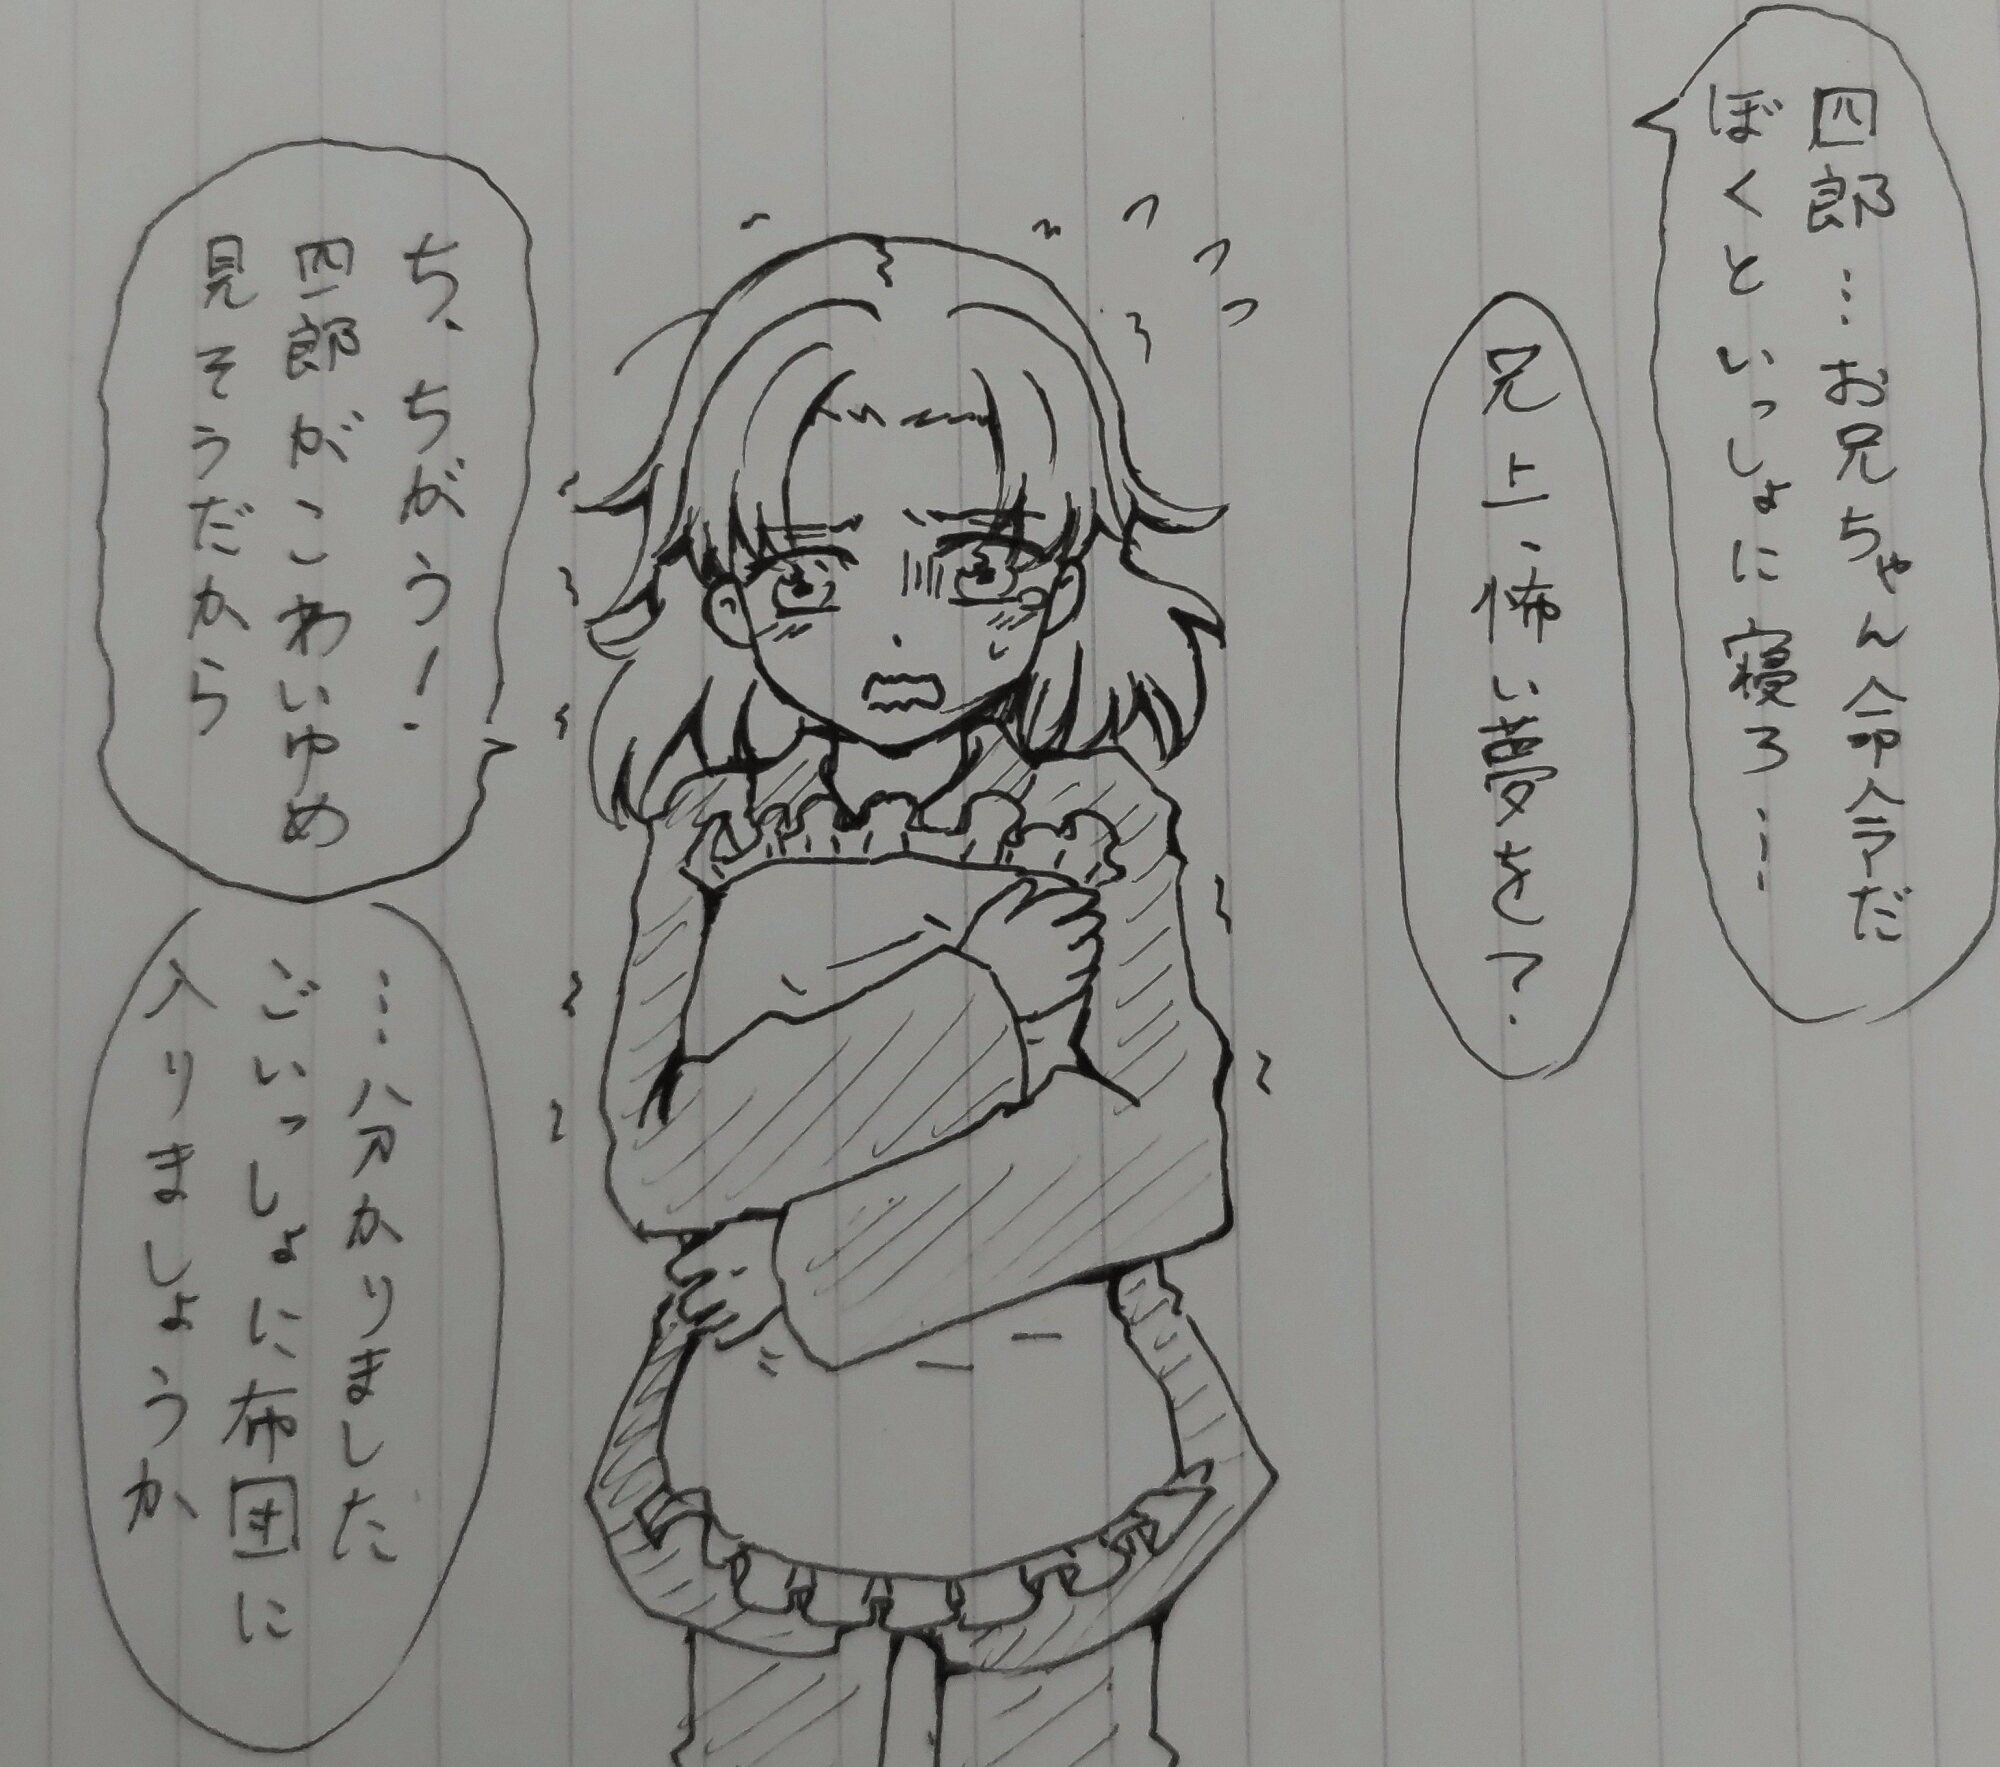 四郎…お兄ちゃん命令だ
ぼくといっしょに寝ろ……
兄上、怖い夢を?
ち、ちがう!
四郎がこわいゆめ
見そうだから
…分かりました
ごいっしょに布団に
入りましょうか